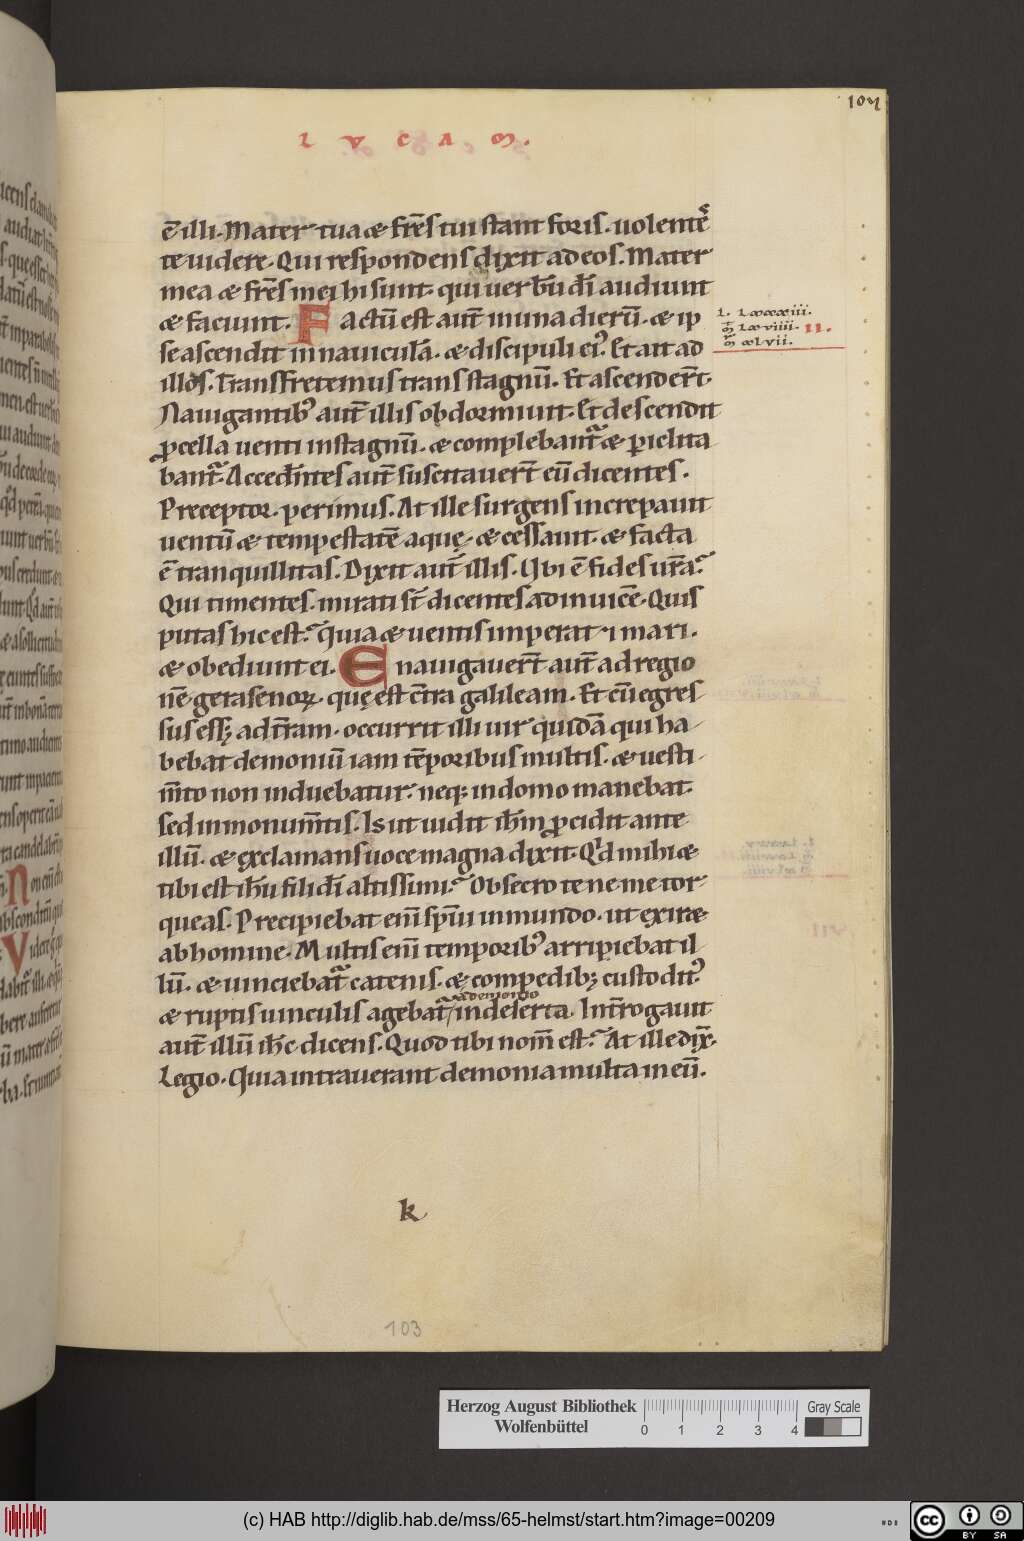 107
L V C A M.
ē illi. Mater tua ⁊ fr̄es tui stant foris. uolentes
te uidere. Qui respondens dixit ad eos. Mater
mea ⁊ fr̄es mei hi sunt. qui uerbū dī audiunt
⁊ faciunt. Factū est aut̄ in una dierū. ⁊ ip
se ascendit in nauiculā. ⁊ discipuli eiꝰ. Et ait ad
illos. Transfretemus trans stagnū. Et ascender̄t.
Nauigantibꝰ aut̄ illis obdormiuit. Et descendit
ꝓcella uenti in stagnū. ⁊ complebant᷑ ⁊ ꝑiclita
bant᷑. Accedentes aut̄ suscitauer̄t eū dicentes.
Preceptor. perimus. At ille surgens increpauit
uentū ⁊ tempestatē aquę. ⁊ cessauit. ⁊ facta
ē tranquillitas. Dixit aut̄ illis. Vbi ē fides ur̄a?
Qui timentes. mirati st̄ dicentes adinuicē. Quis
putas hic est? quia ⁊ uentis imperat ⁊ mari.
⁊ obediunt ei. Enauigauer̄t aut̄ ad regio
nē gerasenoꝝ. quę est c̄tra galileam. Et cū egres
sus ess& ad t̄ram. occurrit illi uir quidā qui ha
bebat demoniū iam tēporibus multis. ⁊ uesti
m̄to non induebatur. neq; in domo manebat.
sed in monum̄tis. Is ut uidit ih̄m ꝓcidit ante
illū. ⁊ exclamans uoce magna dixit. Qd̄ mihi ⁊
tibi est ih̄u fili dī altissimi? Obsecro te ne me tor
queas. Precipiebat eni̅ spi̅ui inmundo. ut exir&
ab homine. Multis eni̅ temporibꝰ arripiebat il
lū. ⁊ uinciebat᷑ catenis. ⁊ compedib; custoditꝰ.
a demonio
⁊ ruptis uinculis agebat᷑ in deserta. Int̄rogauit
aut̄ illū ih̄c dicens. Quod tibi nom̄ est? At ille dix̄.
Legio. Quia intrauerant demonia multa in eū.
II.
k
103
Herzog August Bibliothek
Wolfenbüttel
0 1 2 3 4
Gray Scale
(c) HAB http://diglib.hab.de/mss/65-helmst/start.htm?image=00209
cc BY SA